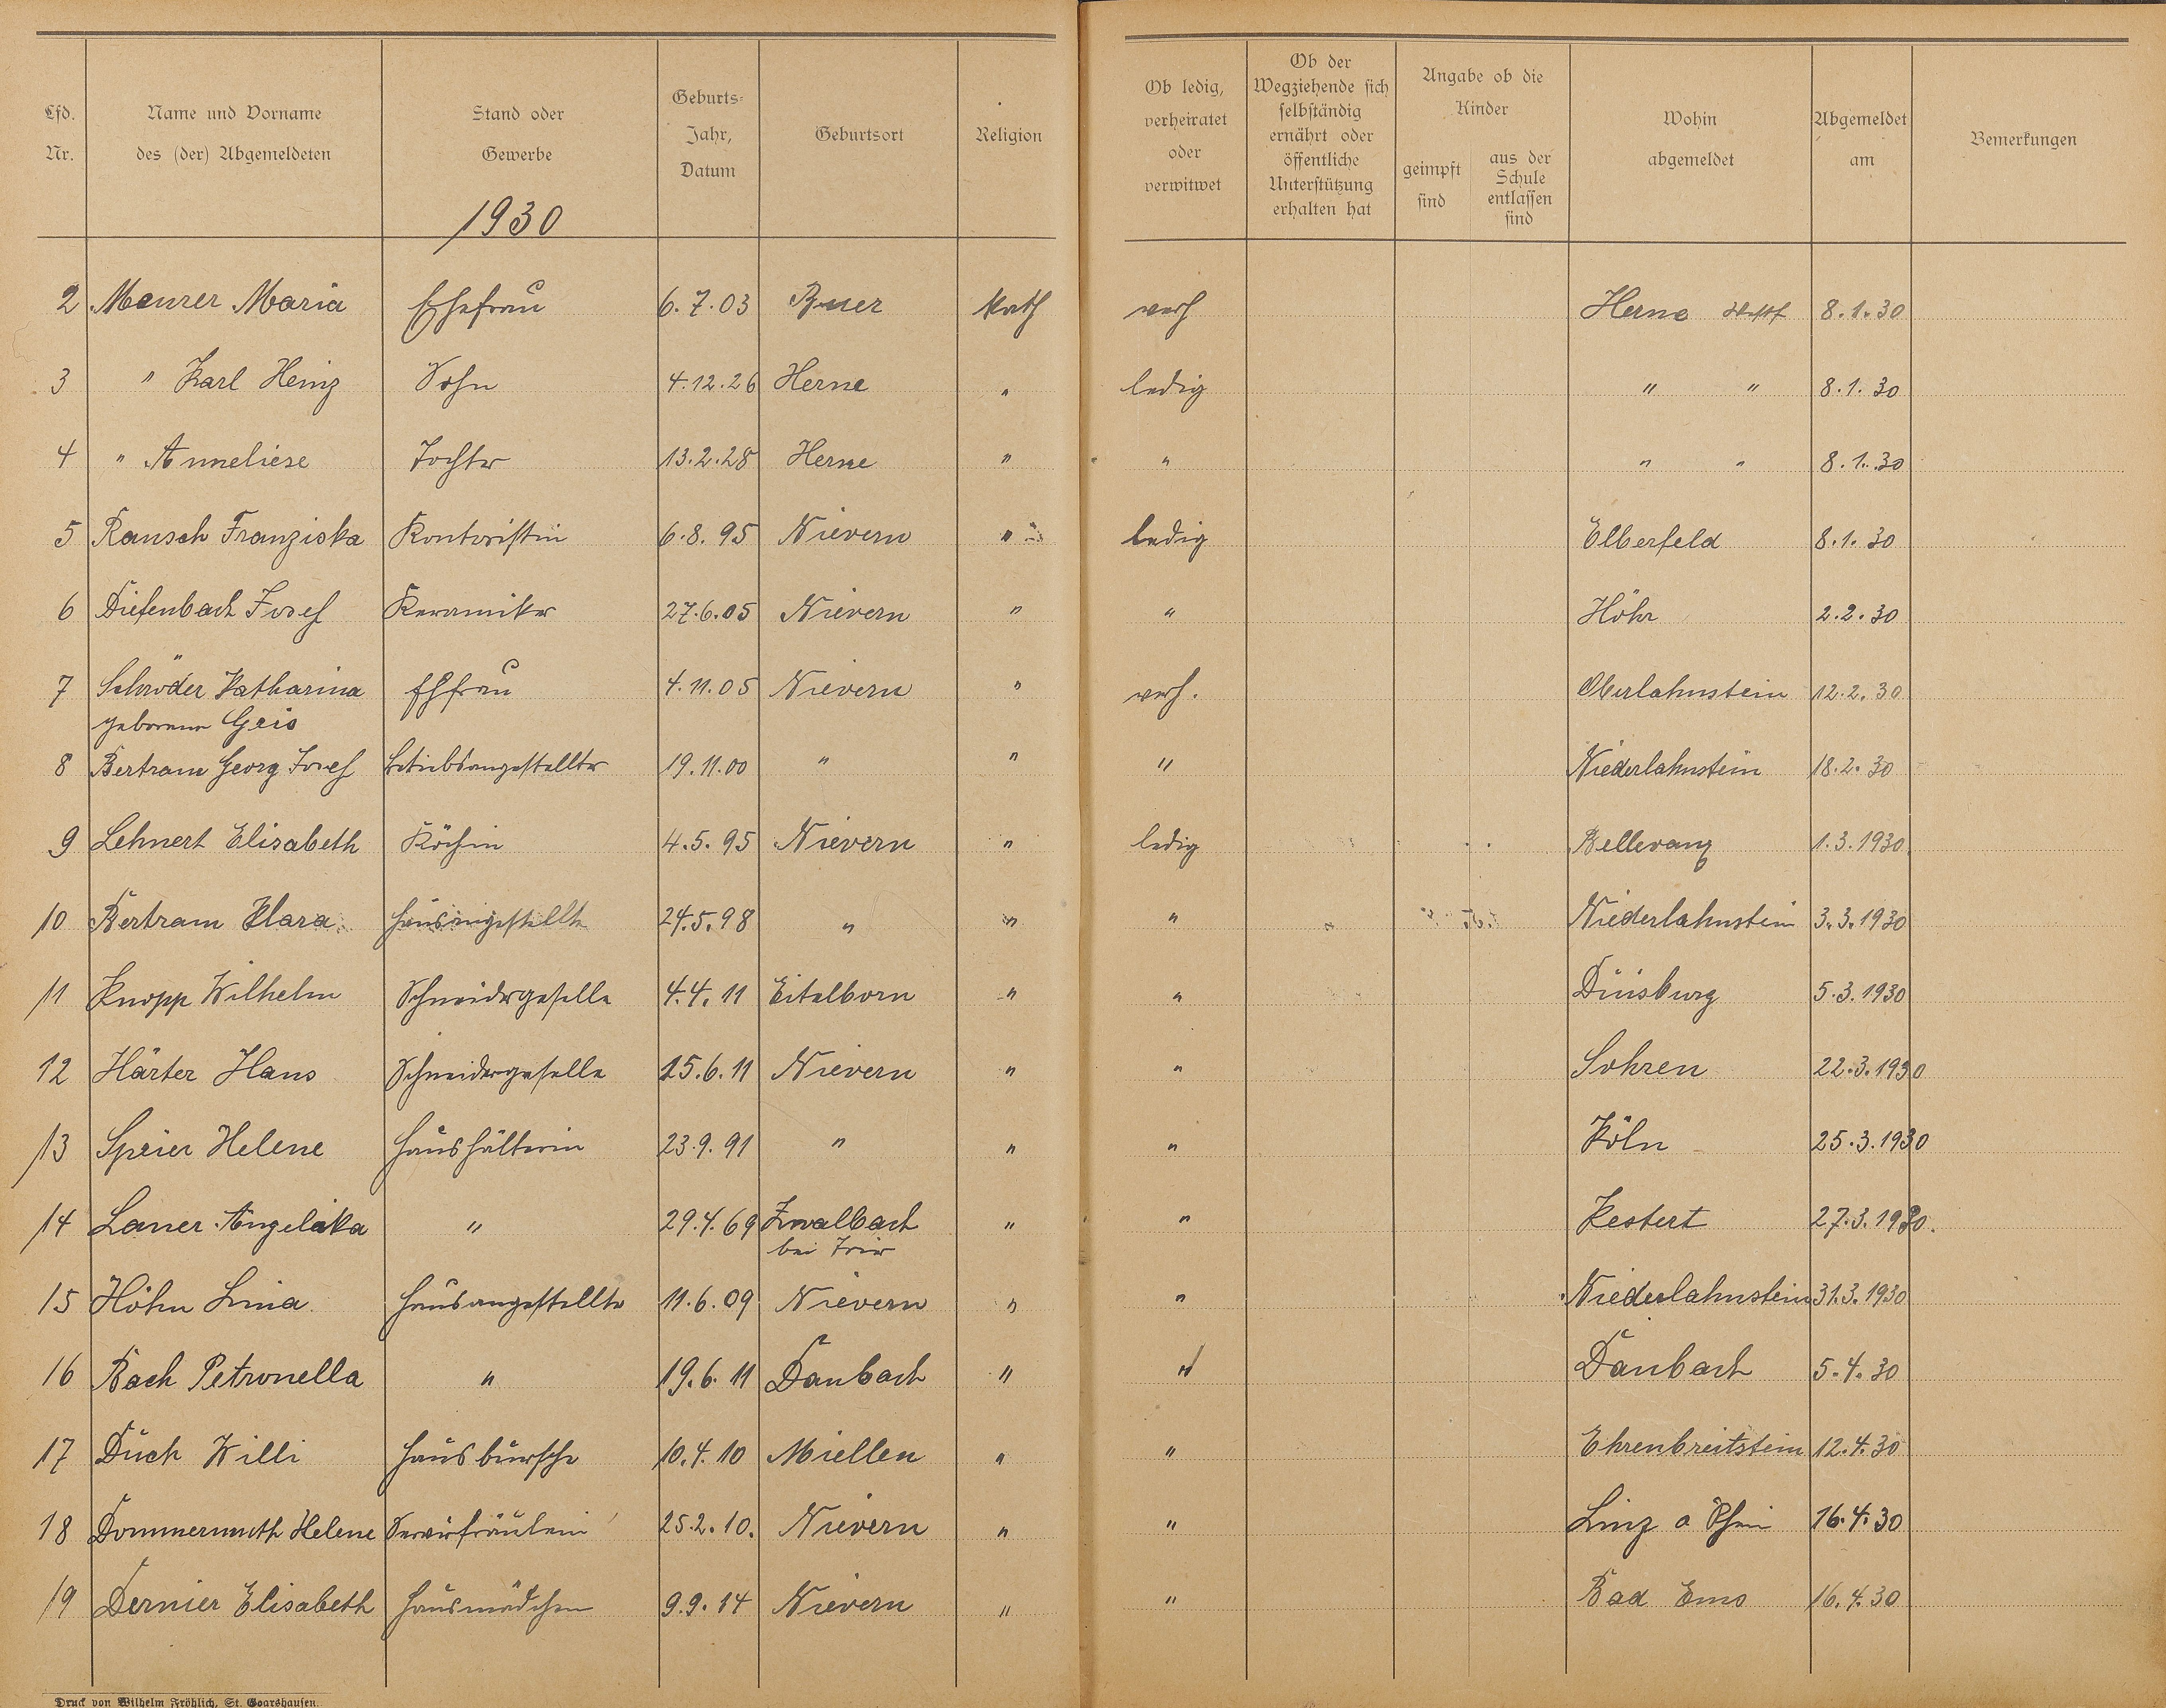 Lfd. Nr.
Name und Vorname des (der) Abgemeldeten
Stand oder Gewerbe
Geburts-Jahr, Datum
Geburtsort
Religion
Ob ledig, verheiratet oder verwitwet
Ob der Wegziehende sich selbständig ernährt oder öffentliche Unterstützung erhalten hat
Angabe ob die Kinder
geimpft sind
aus der Schule entlassen sind
Wohin abgemeldet
Abgemeldet am
Bemerkungen
1930
2 Meurer Maria Ehefrau 6.7.03 Buer Kath verh Herne 8.1.30
3 " Karl Heinz Sohn 4.12.26 Herne " ledig " " 8.1.30
4 " Anneliese Tochter 13.2.28 Herne " " " " 8.1.30
5 Rausch Franziska Kontoristin 6.8.95 Nievern " ledig Elberfeld 8.1.30
6 Diefenbach Josef Keramiker 27.6.05 Nievern " " Höhr 2.2.30
7 Schröder Katharina Ehfrau 4.11.05 Nievern " verh. Oberlahnstein 12.2.30
geborene Geis
8 Bertram Georg Josef Betriebsangestellter 19.11.00 " " " Niederlahnstein 18.2.30
9 Lehnert Elisabeth Köchin 4.5.95 Nievern " ledig 1.3.1930
10 Bertram Klara Hausangestellte 24.5.98 " " " Niederlahnstein 3.3.1930
11 Knopp Wilhelm Schneidergeselle 4.4.11 Eitelborn " " Duisburg 5.3.1930
12 Härter Hans Schneidergeselle 15.6.11 Nievern " " Sohren 22.3.1930
13 Speier Helene Haushälterin 23.9.91 " " " Köln 25.3.1930
14 Laner Angelika " 29.4.69 Zwalbach " " Kestert 27.3.1930.
bei Trier
15 Höhn Lina Hausangestellte 11.6.09 Nievern " " Niederlahnstein 31.3.1930
16 Bach Petronella " 19.6.11 Daubach " " Daubach 5.4.30
17 Duch Willi Hausbursche 10.4.10 Miellen " " Ehrenbreitstein 12.4.30
18 Dommermuth Helene Servirfräulein 25.2.10. Nievern " " Linz a Rhein 16.4.30
19 Dernier Elisabeth Hausmädchen 9.9.14 Nievern " " Bad Ems 16.4.30
Druck von Wilhelm Fröhlich, St. Goarshausen.